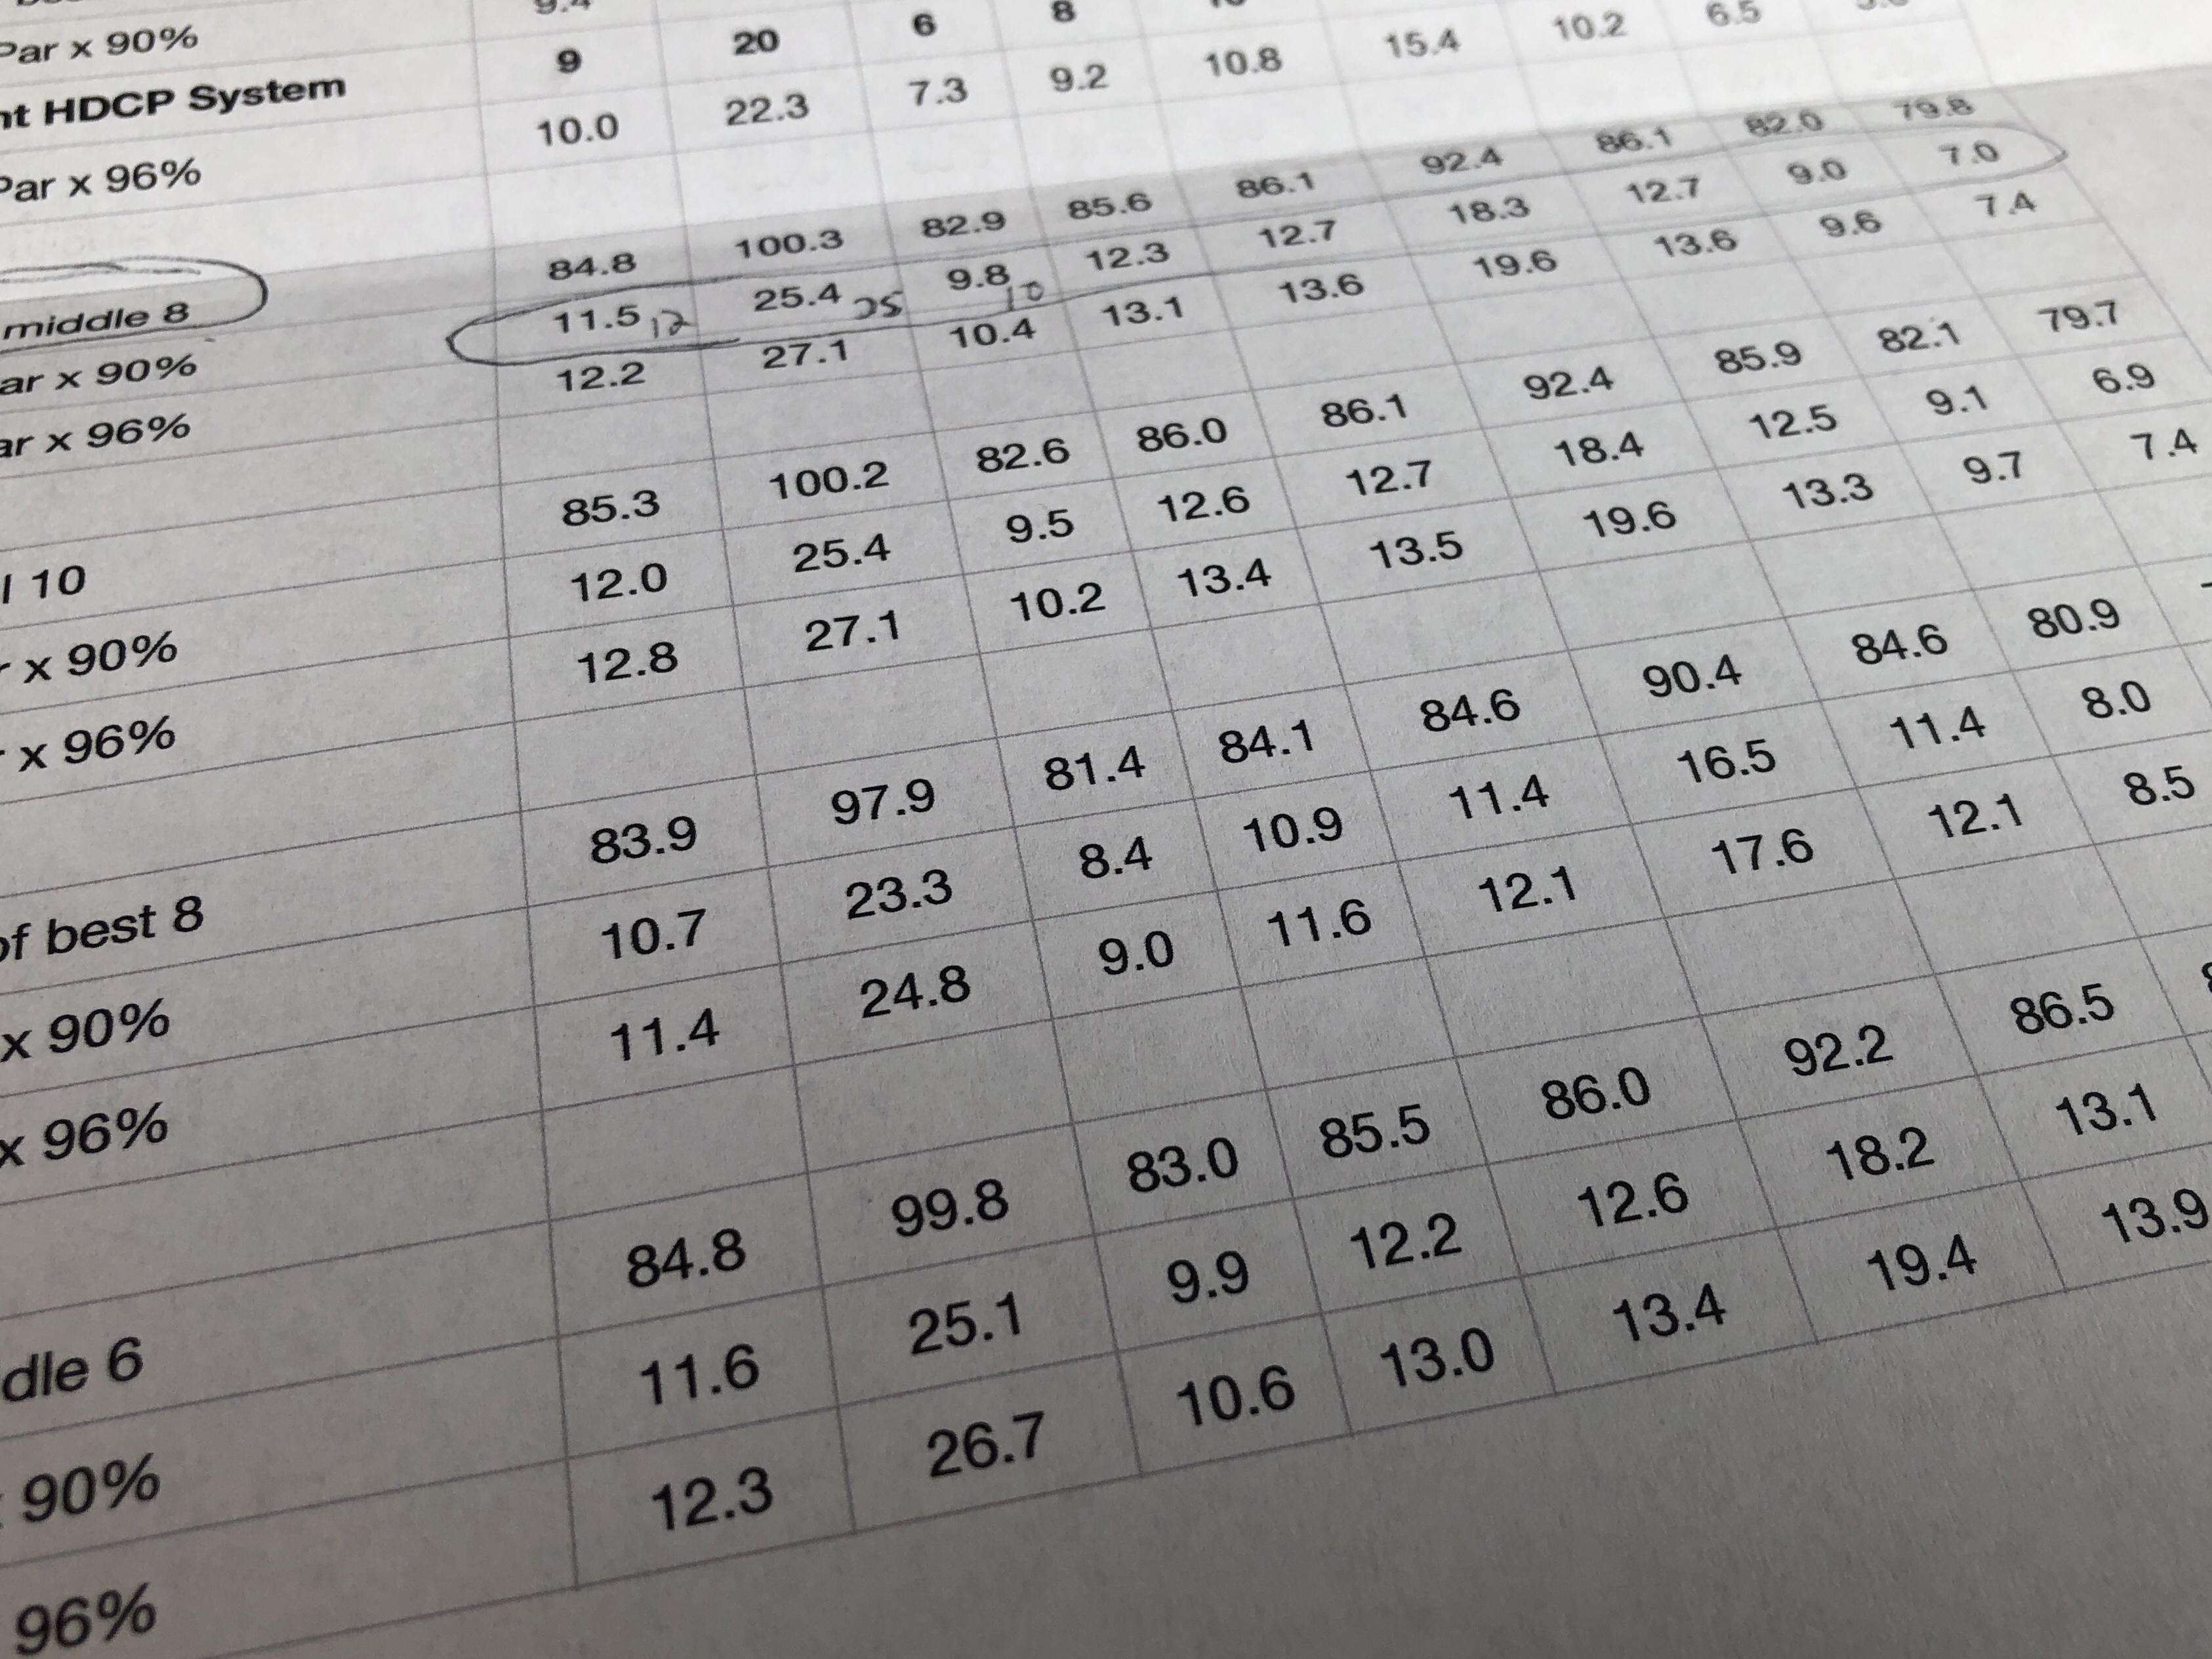 9.4 8
Par x 90% 9 20 6 8 10.2 6.5
nt HDCP System 10.0 22.3 7.3 9.2 10.8 15.4
Par x 96%
84.8 100.3 82.9 85.6 86.1 92.4 86.1 82.0 79.8
middle 8 11.5 12 25.4 25 9.8 10 12.3 12.7 18.3 12.7 9.0 7.0
ar x 90% 12.2 27.1 10.4 13.1 13.6 19.6 13.6 9.6 7.4
ar x 96%
85.3 100.2 82.6 86.0 86.1 92.4 85.9 82.1 79.7
l 10 12.0 25.4 9.5 12.6 12.7 18.4 12.5 9.1 6.9
r x 90% 12.8 27.1 10.2 13.4 13.5 19.6 13.3 9.7 7.4
x 96%
83.9 97.9 81.4 84.1 84.6 90.4 84.6 80.9
of best 8 10.7 23.3 8.4 10.9 11.4 16.5 11.4 8.0
x 90% 11.4 24.8 9.0 11.6 12.1 17.6 12.1 8.5
x 96%
84.8 99.8 83.0 85.5 86.0 92.2 86.5
dle 6 11.6 25.1 9.9 12.2 12.6 18.2 13.1
90% 12.3 26.7 10.6 13.0 13.4 19.4 13.9
96%